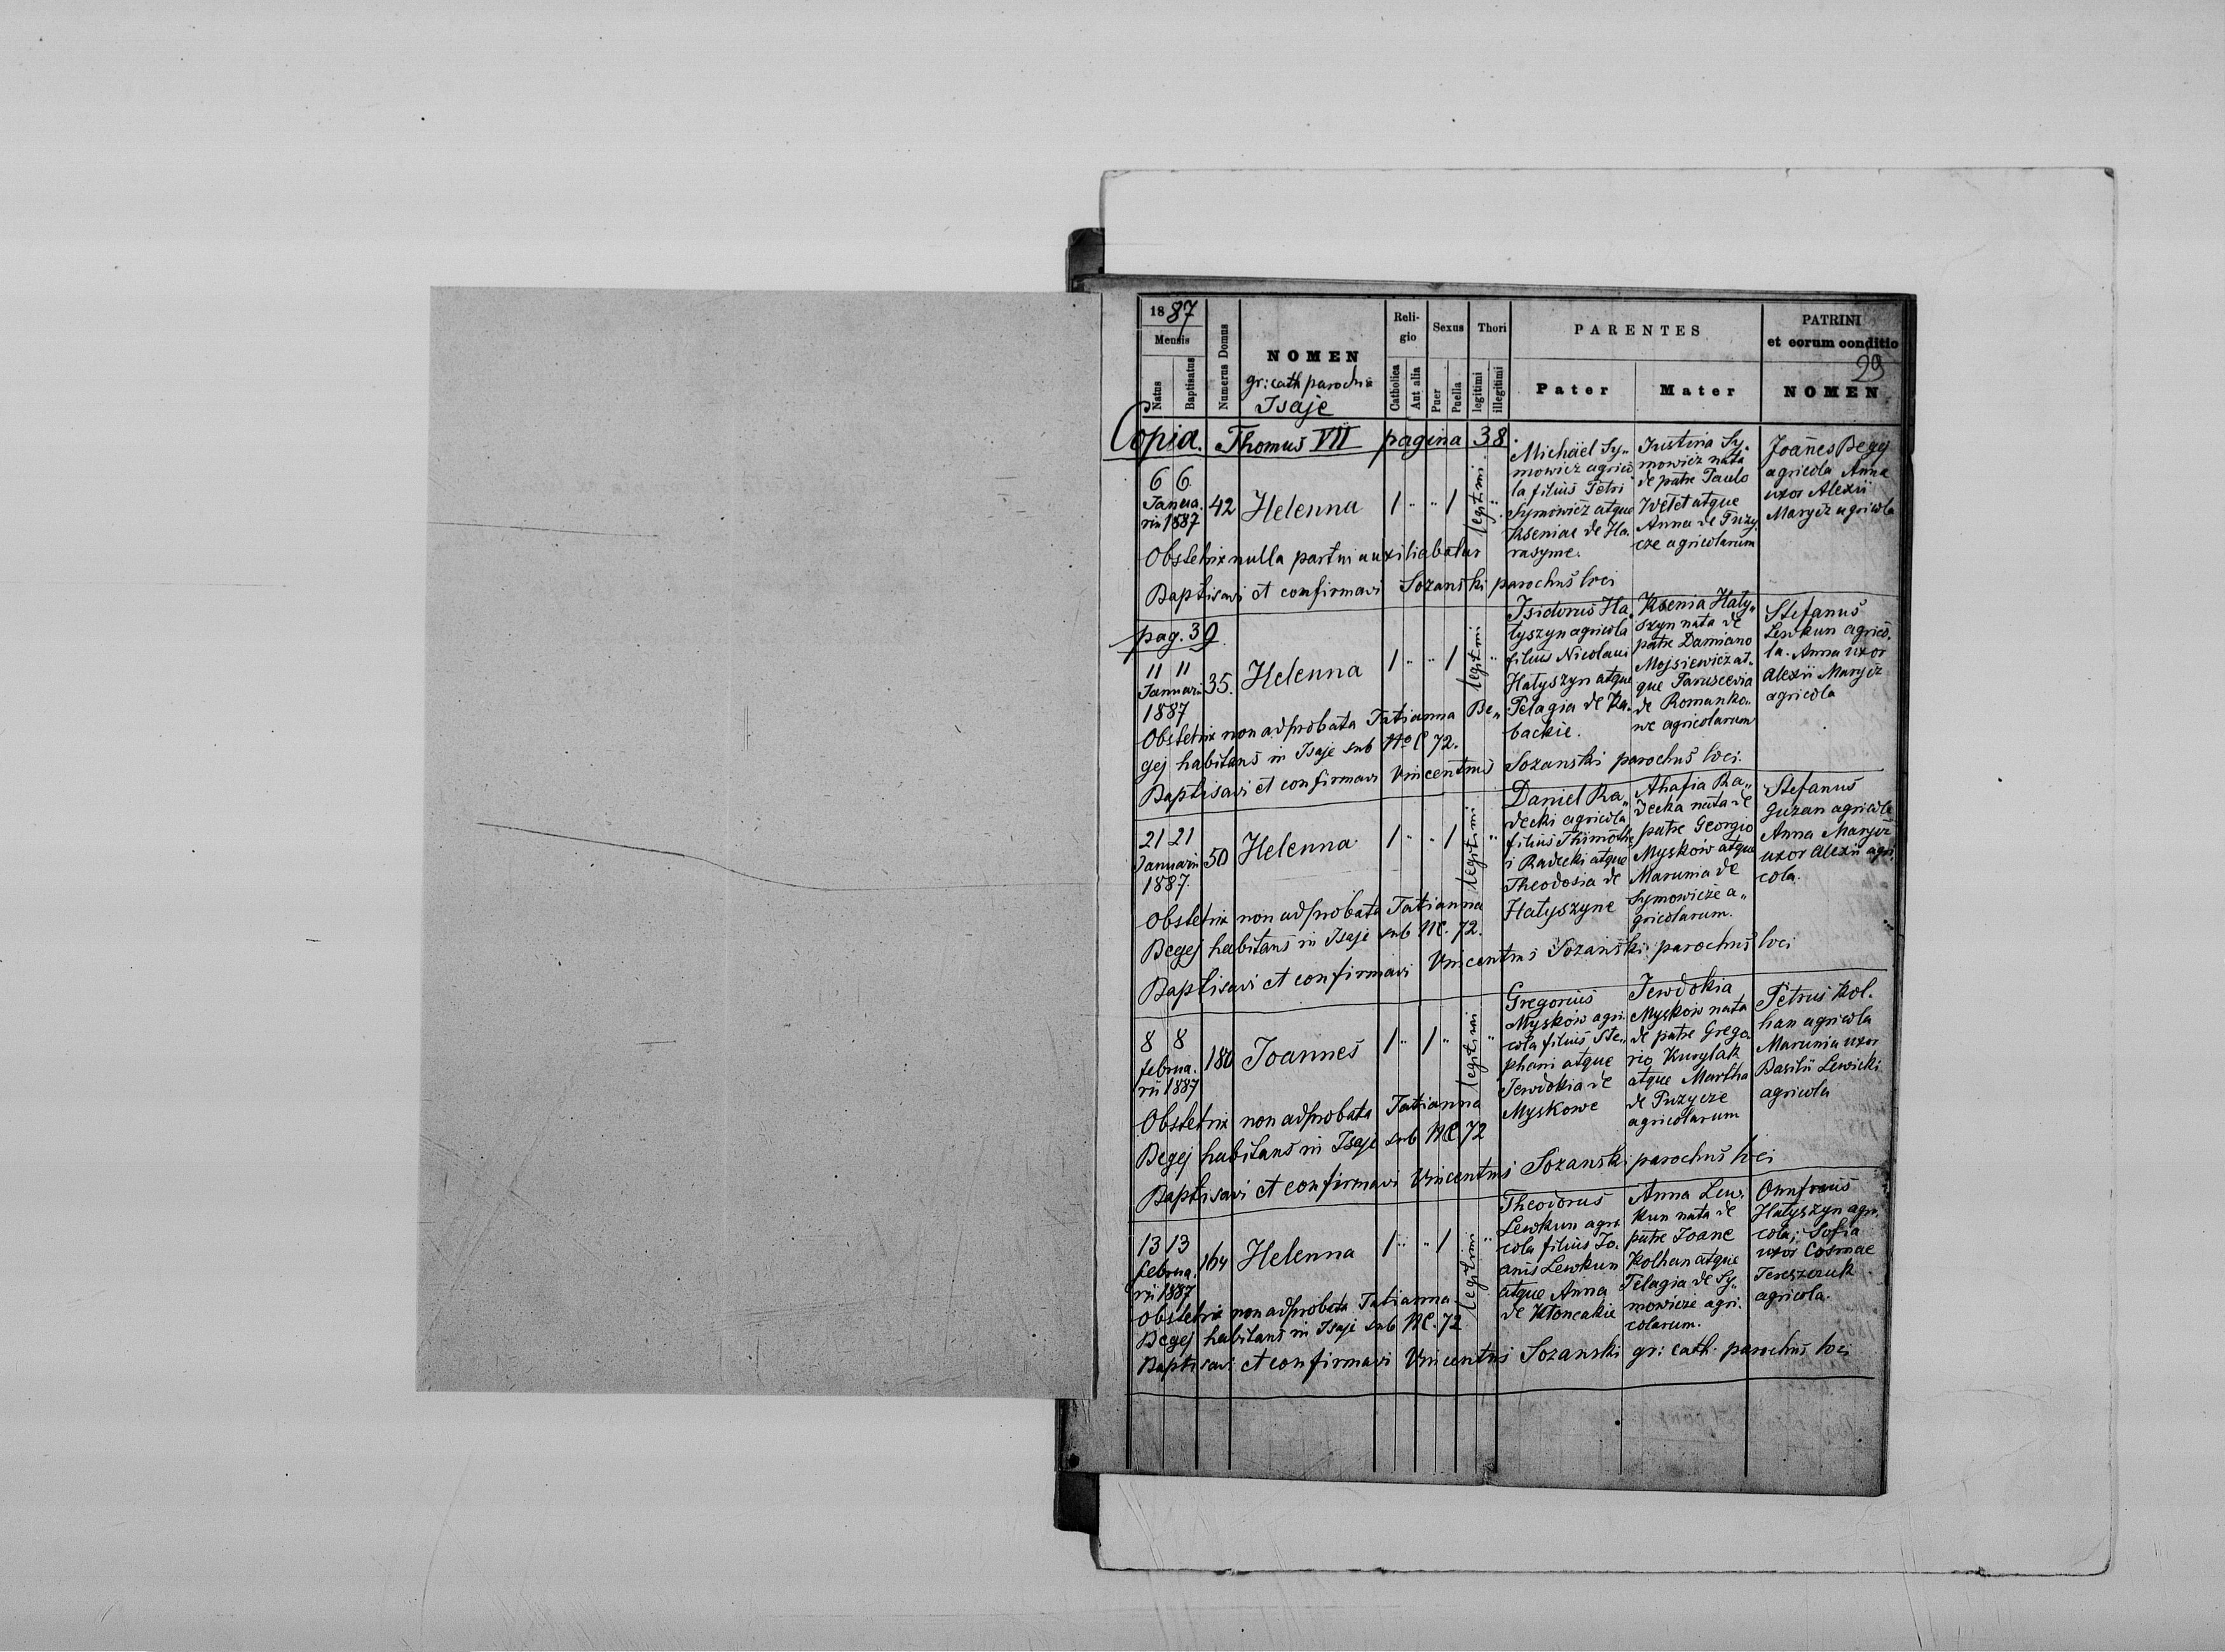 1887
Mensis
Natus
Baptisatus
Numerus Domus
NOMEN
gr: cath parochia
Isaje
Reli-
gio
Catholica
Aut alia
Sexus
Puer
Puella
Thori
legitimi
illegitimi
PARENTES
Pater
Mater
PATRINI
et eorum conditio
29
NOMEN
Copia. Thomus VII pagina 38.
6 6
Janua.
rii 1887
42
Helenna
1 " " 1
legitimi
"
Michäel Sy„
mowicz agrico
la filius Petri
Symowicz atque
Kseniae de Ha.
rasyme.
Justina Sy„
mowicz nata
de patre Paulo
Wetet atque
Anna de Puzy
cze agricolarum
Joañes Begej
agricola Anna
uxor Alexii
Marycz agricola
Obstetrix nulla partui auxiliabatur
Baptisavi et confirmavi Sozański parochus loci
pag. 39
11 11
Januarii
1887
35.
Helenna
1 " " 1
legitimi
"
Isidorus Ha.
tyszyn agricola
filius Nicolaui
Hatyszyn atque
Pelagia de Ka„
backie.
Ksenia Haty„
szyn nata de
patre Damiano
Mojsiewicz at„
que Paruscevia
de Romanko„
we agricolarum
Stefanus
Lewkun agrico.
la. Anna uxor
Alexii Marycz
agricola
Obstetrix non adprobata Tatianna Be„
gej habitans in Isaje sub No C 72.
Baptisavi et confirmavi Vincentius Sozanski parochus loci.
21 21
Januarii
1887.
50
Helenna
1 " " 1
legitimi
"
Daniel Ra„
decki agricola
filius Thimothe
i Radecki atque
Theodosia de
Hatyszyne
Ahafia Ra„
decka nata de
patre Georgio
Myskow atque
Marunia de
Symowicze a„
gricolarum.
Stefanus
Guzan agricola
Anna Marycz
uxor Alexii agri.
cola.
Obstetrix non adprobata Tatianna
Begej habitans in Isaje sub NC. 72.
Baptisavi et confirmavi Vincentius Sozański parochus loci
8 8
februa.
rii 1887
180
Joannes
1 " 1 "
legitimi
"
Gregorius
Myskow agri.
cola filius Ste„
phani atque
Jewdokia de
Myskowe
Jewdokia
Myskow nata
de patre Grego.
rio Kurylak
atque Martha
de Puzycze
agricolarum
Petrus Kol.
han agricola
Marunia uxor
Basilii Lewicki
agricola
Obstetrix non adprobata Tatianna
Begej habitans in Isaje sub NC 72
Baptisavi et confirmavi Vincentius Sozanski parochus loci
13 13
februa.
rii 1887
164
Helenna
1 " " 1
legitimi
"
Theodorus
Lewkun agri
cola filius Jo.
anis Lewkun
atque Anna
de Ktoncakie
Anna Lew.
kun nata de
patre Joane
Kolhan atque
Pelagia de Sy„
mowicze agri.
colarum.
Onufrius
Hatyszyn agri.
cola; Sofia
uxor Cosmae
Tereszczuk
agricola.
Obstetrix non adprobata Tatianna
Begej habitans in Isaje sub NC. 72
Baptisavi et confirmavi Vincentius Sozanski gr: cath. parochus loci